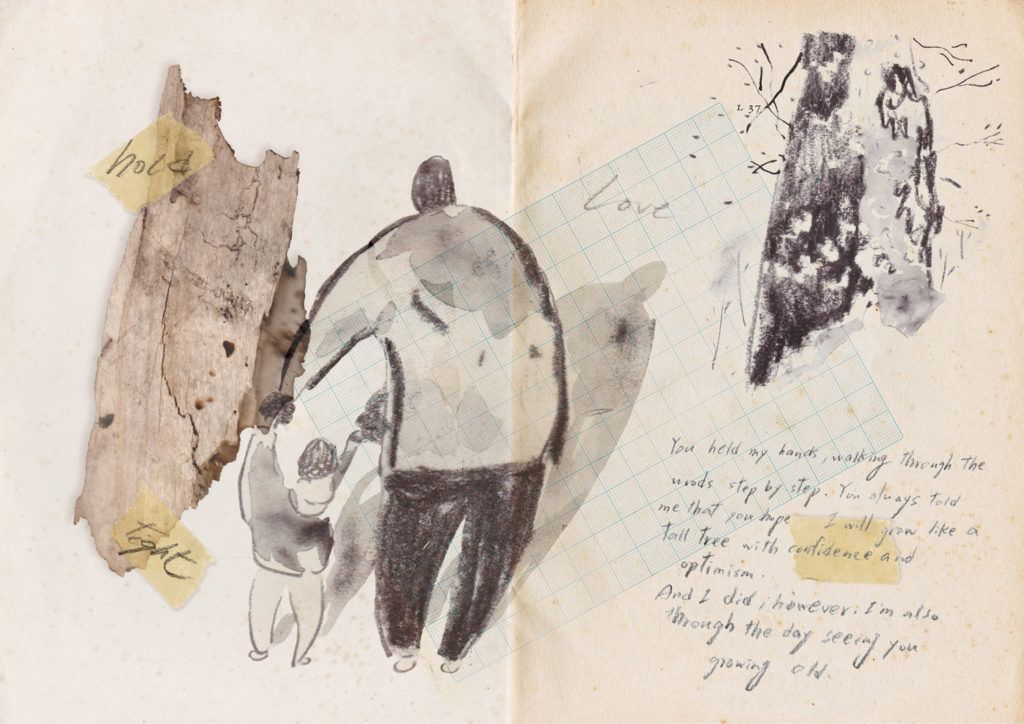 hold
tight
Love
L 37
You held my hands, walking through the
woods step by step. You always told
me that you hope I will grow like a
tall tree with confidence and
optimism.
And I did; however, I'm also
through the day seeing you
growing old.